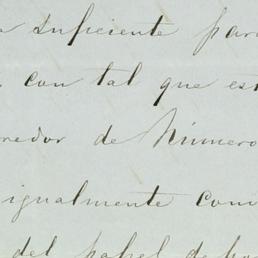 suficiente para
con tal que est
redor de Número
igualmente com
del papel de